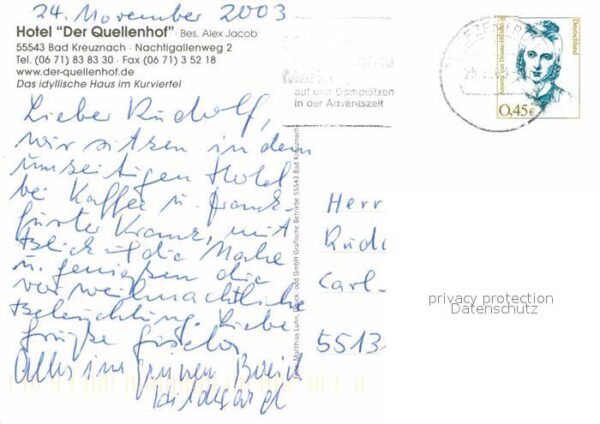 24. November 2003
Hotel "Der Quellenhof" · Bes. Alex Jacob
55543 Bad Kreuznach · Nachtigallenweg 2
Tel. (06 71) 83 83 30 · Fax (06 71) 3 52 18
www.der-quellenhof.de
Das idyllische Haus im Kurviertel
Lieber Rudolf,
wir sitzen in dem
umseitigen Hotel
bei Kaffee u. Frank-
furter Kranz, mit
Blick auf die Nahe
u. genießen die
vorweihnachtliche
Beleuchtung. Liebe
Grüße Gisela
Alles im grünen Bereich
Hildegard
Markt
auf den Domplätzen
in der Adventszeit
Deutschland
0,45€
Herr
Rudo
Carl-
5513
Foto: Matthias Luhn, Druck: odd GmbH Grafische Betriebe 55543 Bad Kreuznach
privacy protection
Datenschutz